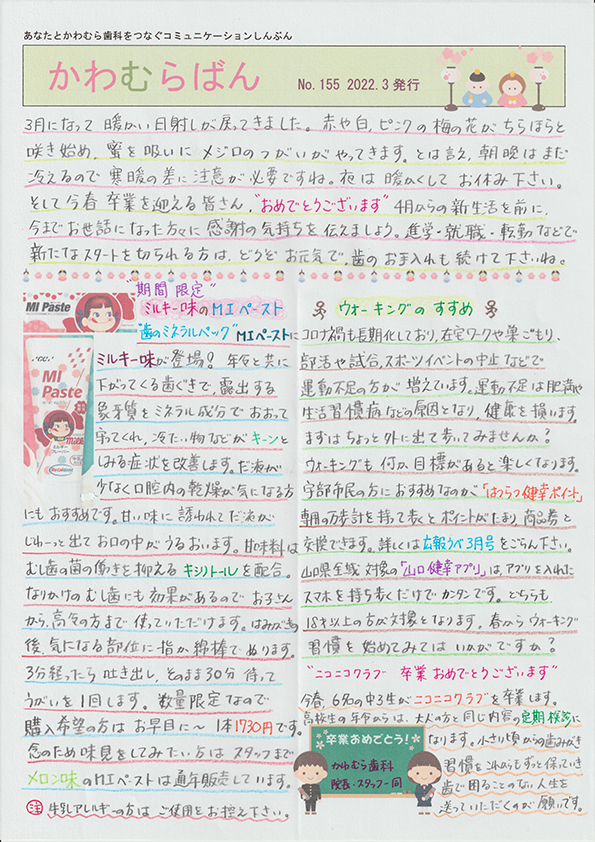 あなたとかわむら歯科をつなぐコミュニケーションしんぶん
かわむらばん No.155 2022.3発行
3月になって 暖かい日射しが戻ってきました。赤や白,ピンクの梅の花がちらほらと
咲き始め,蜜を吸いに メジロのつがいがやってきます。とは言え,朝晩はまだ
冷えるので 寒暖の差に注意が必要ですね。夜は暖かくしてお休み下さい。
そして今春 卒業を迎える皆さん,"おめでとうございます" 4月からの新生活を前に,
今までお世話になった方々に 感謝の気持ちを伝えましょう。進学・就職・転勤などで
新たなスタートを切られる方は,どうぞお元気で,歯のお手入れも続けて下さいね。
期間限定"
ミルキー味のMIペースト
"歯のミネラルパック"MIペーストに
ミルキー味が登場! 年々と共に
下がってくる歯ぐきで,露出する
象牙質をミネラル成分でおおって
守ってくれ,冷たい物などがキーンと
しみる症状を改善します。だ液が
少なく口腔内の乾燥が気になる方
にもおすすめです。甘い味に誘われてだ液が
じわーっと出てお口の中がうるおいます。甘味料は
むし歯の菌の働きを抑えるキシリトールを配合。
なりかけのむし歯にも効果があるのでお子さん
から,高令の方まで使っていただけます。はみがきの
後,気になる部位に指か綿棒でぬります。
3分経ったら吐き出し,そのまま30分待って
うがいを1回します。数量限定なので
購入希望の方はお早目に〜 1本1730円です。
念のため味見をしてみたい方はスタッフまで
メロン味のMIペーストは通年販売しています。
注 牛乳アレルギーの方はご使用をお控え下さい。
MI Paste
GC
MI
Paste
ミルキー
フレーバー
ウォーキングのすすめ
コロナ禍も長期化しており,在宅ワークや巣ごもり,
部活や試合,スポーツイベントの中止などで
運動不足の方が増えています。運動不足は肥満や
生活習慣病などの原因となり,健康を損います。
まずはちょっと外に出て歩いてみませんか?
ウォーキングも何か目標があると楽しくなります。
宇部市民の方におすすめなのが「はつらつ健幸ポイント」
専用の万歩計を持って歩くとポイントがたまり,商品券と
交換できます。詳しくは広報うべ3月号をごらん下さい。
山口県全域対象の「山口健幸アプリ」は,アプリを入れた
スマホを持ち歩くだけでカンタンです。どちらも
18才以上の方が対象となります。春からウォーキング
習慣を始めてみてはいかがですか?
"ニコニコクラブ 卒業おめでとうございます"
今春,6名の中3生がニコニコクラブを卒業します。
高校生の年令からは,大人の方と同じ内容の定期検診に
なります。小さい頃からの歯みがき
習慣をこれからもずっと保っていき
歯で困ることのない人生を
送っていただくのが願いです。
卒業おめでとう!
かわむら歯科
院長・スタッフ一同